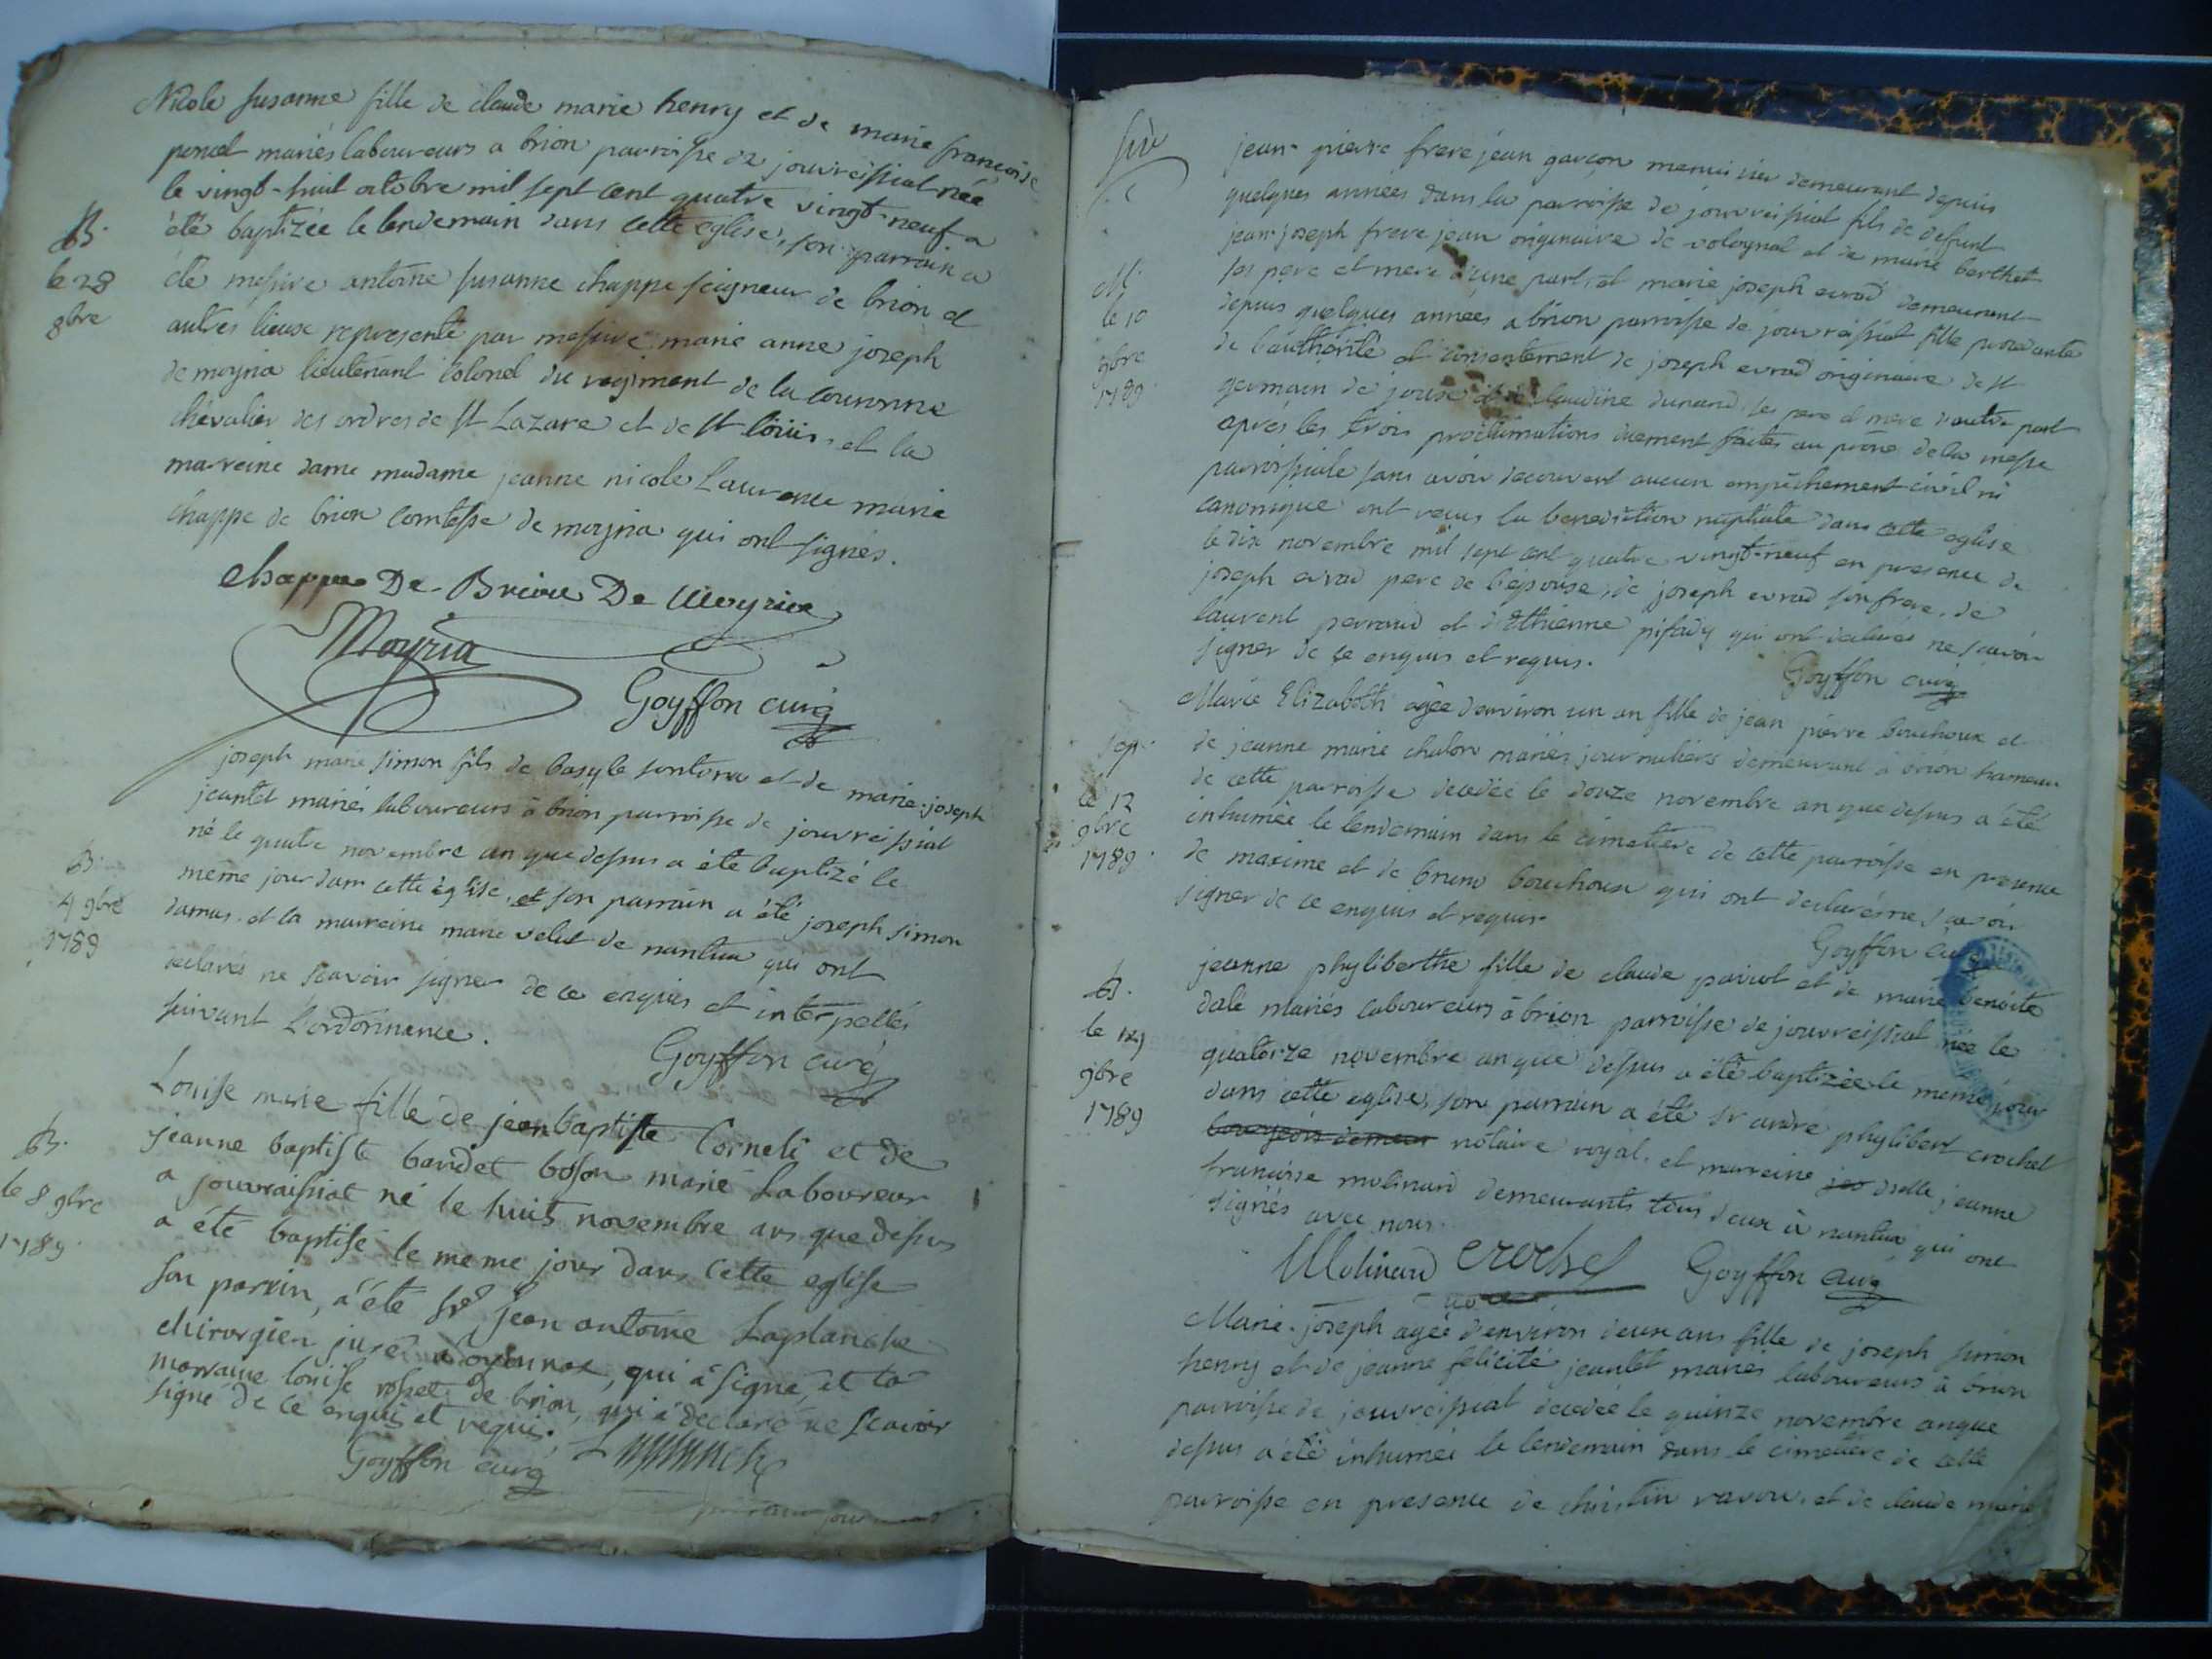 Nicole susanne fille de claude marie henry et de marie françoise
poncet mariés laboureurs a brion parroisse de jouvreissiat née
le vingt-huit octobre mil sept cent quatre vingt-neuf a
B.
le 28
8bre
été baptizée le lendemain dans cette eglise, son parrain a
été messire antoine susanne chappe seigneur de brion et
autres lieux representé par messire marie anne joseph
de moyria lieutenant colonel du regiment de la couronne
chevalier des ordres de st Lazare et de st loüis, et la
marreine dame madame jeanne nicole Laurence marie
chappe de brion comtesse de moyria qui ont signés.
chappe De Brion De Moyria
Moyria
Goyffon curé
joseph marie simon fils de basyle et de marie-joseph
jeantet mariés laboureurs à brion parroisse de jouvreissiat
né le quatre novembre an que dessus a été baptizé le
B.
4 9bre
1789
même jour dans cette église, et son parrain a été joseph simon
damas et la marreine marie velut de nantua qui ont
declarés ne scavoir signer de ce enquis et interpellés
suivant l'ordonnance.
Goyffon curé
Louise marie fille de jean baptiste Corneli et de
B.
le 8 9bre
1789.
jeanne baptiste baudet boson marié Laboureur
a jouvraissiat né le huit novembre ans que dessus
a été baptisé le meme jour dans cette eglise
son parrin, a été sr jean antoine Laplanche
chirurgien juré a oyonnax, qui à signé, et la
marraine louise rosset de brion, qui a declaré ne scavoir
signé de ce enquis et requis.
Goyffon curé Laplanche
jean-pierre frerejean garçon menuisier demeurant depuis
quelques années dans la parroisse de jouvreissiat fils de defunt
jean-joseph frerejean originaire de volognat et de marie berthet
M.
le 10
9bre
1789
ses pere et mere d'une part, et marie joseph evrad demeurant
depuis quelques années a brion parroisse de jouvreissiat fille procedante
de l'authorité et consentement de joseph evrad originaire de st
germain de joux et de claudine dunand, ses pere et mere d'autre part
après les trois proclamations duement faites au prône de la messe
parroissiale sans avoir decouvert aucun empêchement civil ni
canonique ont reçus la benediction nuptiale dans cette eglise
le dix novembre mil sept cent quatre vingt-neuf en presence de
joseph evrad pere de l'épouse, de joseph evrad son frere, de
laurent perraud et d'Ethienne pifady qui ont declarés ne scavoir
signer de ce enquis et requis.
Goyffon curé
Marie Elizabeth agée d'environ un an fille de jean pierre bouchoux et
Sep.
le 12
9bre
1789.
de jeanne marie chalon mariés journaliers demeurant à brion hameau
de cette parroisse decedée le douze novembre an que dessus a été
inhumée le lendemain dans le cimetiere de cette parroisse en presence
de maxime et de bruno bouchoux qui ont declarés ne scavoir
signer de ce enquis et requis
Goyffon curé
jeanne phyliberthe fille de claude et de marie benoite
B.
le 14
9bre
1789
dale mariés laboureurs à brion parroisse de jouvreissiat née le
quatorze novembre an que dessus a été baptizée le meme jour
dans cette eglise, son parrain a été sr andré phylibert crochet
bourgeois demeur notaire royal, et marreine jea dselle jeanne
françoise molinard demeurants tous deux à nantua qui ont
signés avec nous.
Molinard Crochet Goyffon curé
Marie-joseph agée d'environ deux ans fille de joseph simon
henry et de jeanne felicité jeantet mariés laboureurs à brion
parroisse de jouvreissiat decedée le quinze novembre an que
dessus a été inhumée le lendemain dans le cimetiere de cette
parroisse en presence de christin ravou, et de claude marie